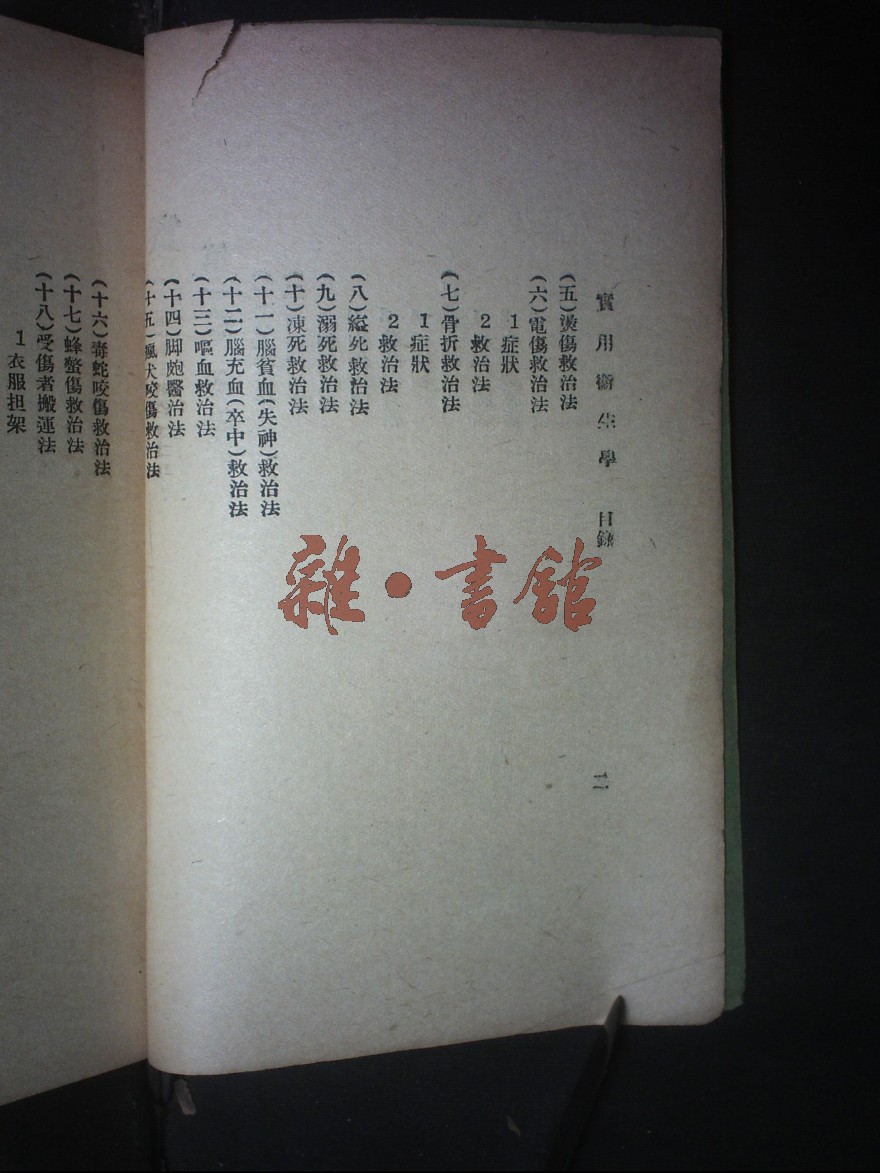 實用衛生學 目錄 二
(五)燙傷救治法
(六)電傷救治法
1症狀
2救治法
(七)骨折救治法
1症狀
2救治法
(八)縊死救治法
(九)溺死救治法
(十)凍死救治法
(十一)腦貧血(失神)救治法
(十二)腦充血(卒中)救治法
(十三)嘔血救治法
(十四)脚皰醫治法
(十五)瘋犬咬傷救治法
(十六)毒蛇咬傷救治法
(十七)蜂螫傷救治法
(十八)受傷者搬運法
1衣服担架
雜·書館